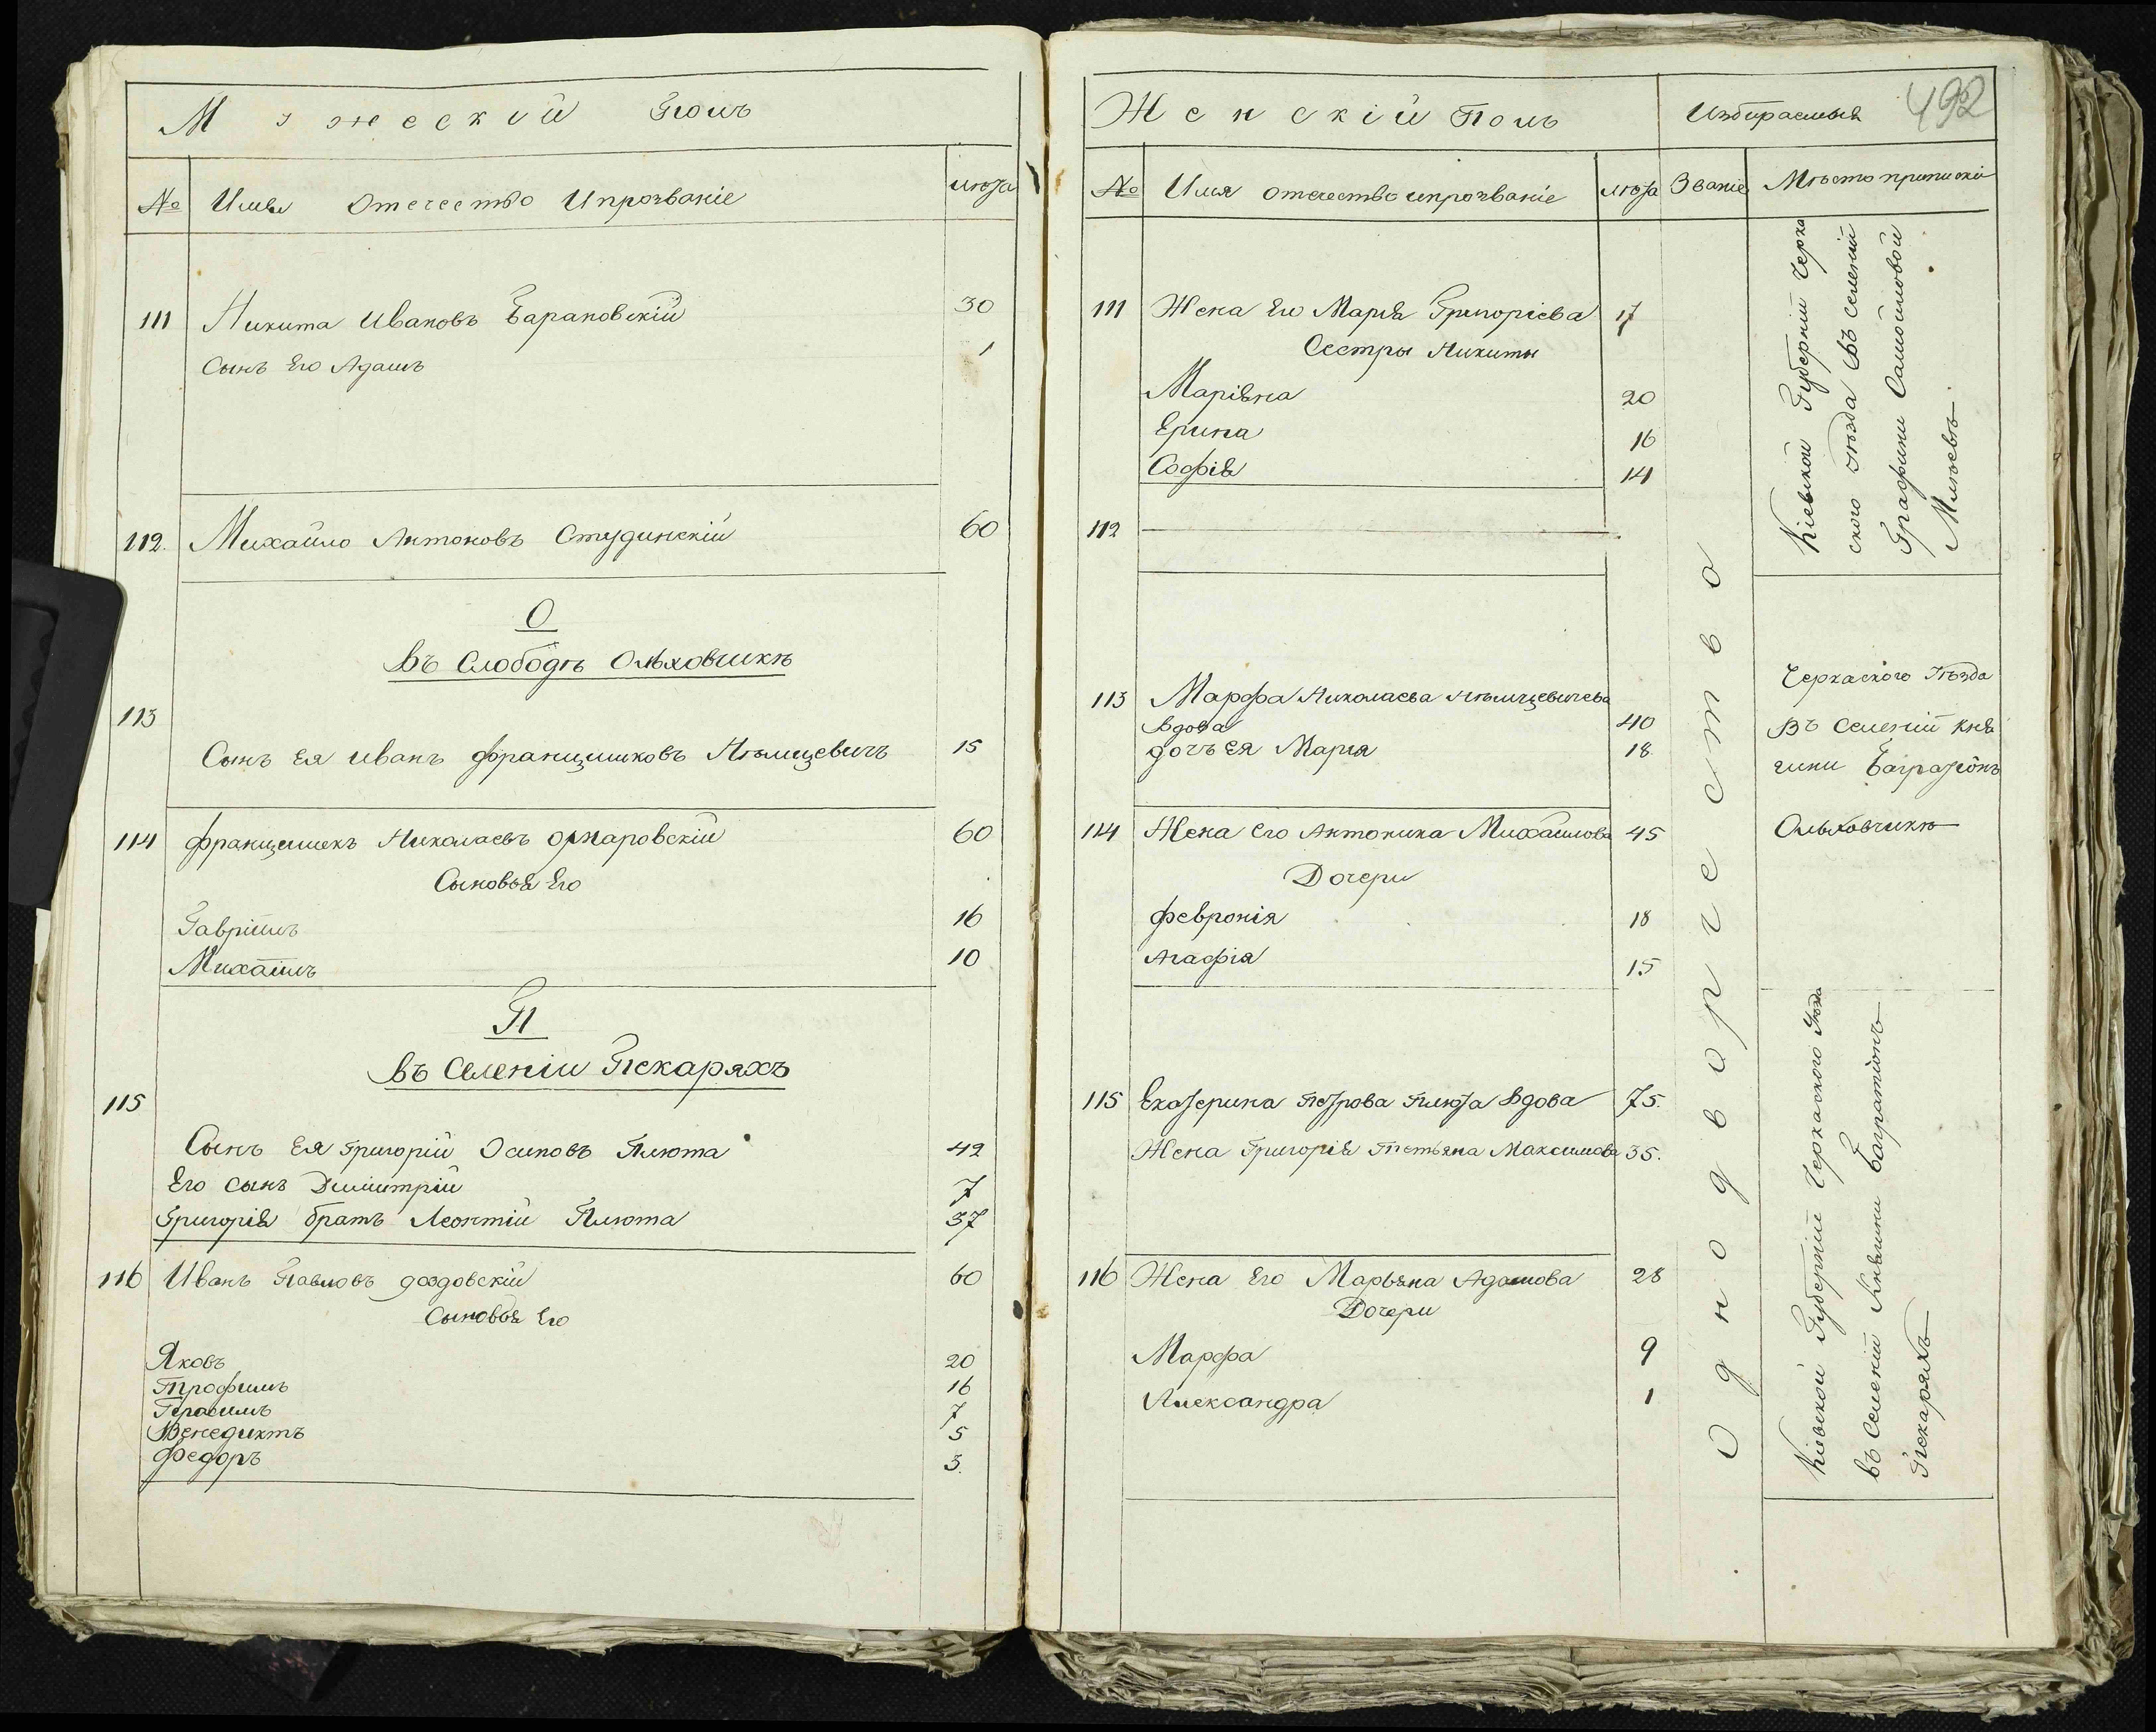 Мужескій Полъ
№ Имя Отечество Ипрозваніе лѣта
111 Никита Ивановъ Барановскій 30
Сынъ Его Адамъ 1
112. Михайло Антоновъ Студинскій 60
О
Въ Слободѣ Ольховчикѣ
113
Сынъ Ея Иванъ Францишковъ Нѣмцевичъ 15
114 Францишекъ Николаевъ Ожаровскій 60
Сыновья Его
Гавріилъ 16
Михаилъ 10
П
Въ Селеніи Пекаряхъ
115
Сынъ Ея Григорій Осиповъ Плюта 42
Его Сынъ Димитрій 7
Григорія братъ Леонтій Плюта 37
116 Иванъ Павловъ 60
Сыновья Его
Яковъ 20
Трофимъ 16
Герасимъ 7
Венедиктъ 5
Федоръ 3.
Женскій Полъ
Избираемыя
492
№ Имя Отечество ипрозваніе лѣта Званіе Мѣсто приписки
111 Жена Его Марія Григоріева 17
Сестры Никиты
Маріяна 20
Ерина 16
Софія 14
112
113 Марфа Николаева Нѣмцевичева
Вдова 40
дочъ Ея Марія 18
114 Жена Его Антонина Михаилова 45
Дочери
Февронія 18
Агафія 15
115 Екатерина Петрова Плюта Вдова 75.
Жена Григорія Тетьяна Максимова 35.
116 Жена Его Марьяна Адамова 28
Дочери
Марфа 9
Александра 1
Однодворчество
Кіевской Губерніи Черка
ского уѣзда Въ Селеніи
Графини Самойловой
Мліевѣ
Черкаского Уѣзда
Въ Селеніи Кня
гини Багратіонъ
Ольховчикѣ
Кіевской Губерніи Черкаского Уѣзда
Въ Селеніи Княгини Багратіонъ
Пекаряхъ